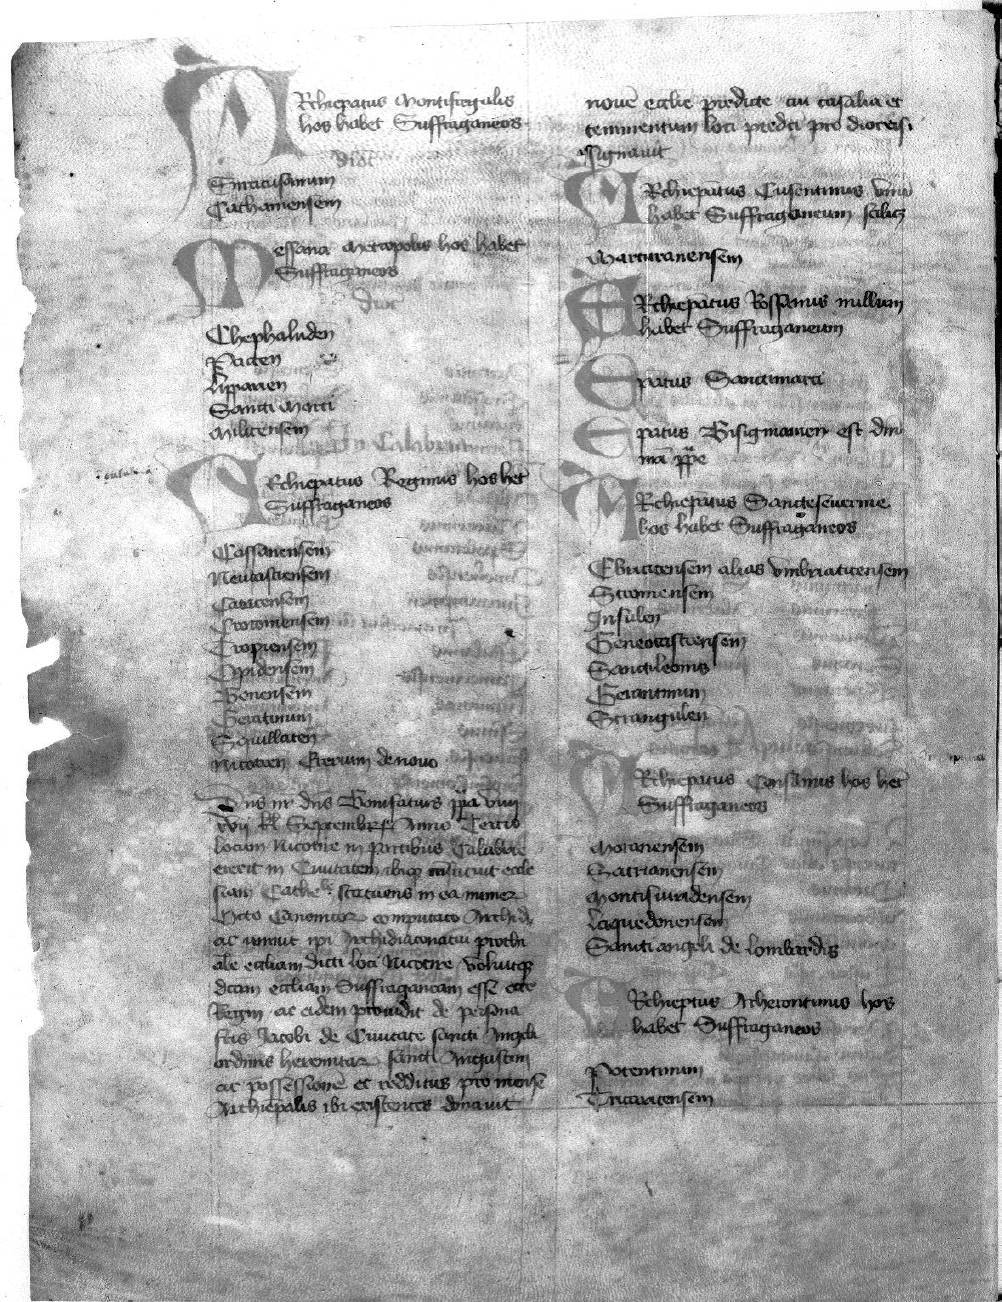 Archiepatus Montisregalis
hos habet Suffraganeos
dioc
Siracusanum
Cathaniensem
Messana Metropolis hos habet
Suffraganeos
dioc
Chephaluden
Pacten
Lipparien
Sancti Marci
Militensem
In Calabria
calabria
Archiepatus Reginus hos het
Suffraganeos
Cassanensem
Neucastrensem
Catacensem
Crotoniensem
Tropiensem
Oppidensem
Bovensem
Geratinum
Squillaten
Nicotren Eterum de novo
Dns nr dns Bonifatius ppa viiij
xvij kl Septembr Anno Tercio
locum Nicotre in partibus Calabrie
erexit in Civitatem ibiqz constituit eccle
siam Cathel. statuens in ea numerz
Octo Canonicorz computato Archid.
ac univit ipi Archidiaconatui prothi
alē eccliam dicti loci Nicotre voluitqz
dictam eccliam Suffraganeam esse ecce
Regin ac eidem providit de persona
fris Jacobi de Civitate sancti Angeli
ordinis heremitarz sancti Augustini
ac possessiones et redditus pro mense
Archiepalis ibi existentes donavit
nove ecclie predicte cu casalia et
tenimentum loci predci pro diocesi
assignavit
Archiepatus Cusentinus unu
habet Suffraganeum scilicz
Marturanensem
Archiepatus Rossanus nullum
habet Suffraganeum
Epatus Sancti marci
Epatus Bisignanen est dni
nri ppe
Archiepatus Sancte severine
hos habet Suffraganeos
Ebriacensem alias umbriaticensem
Stromensem
Insulen
Geneocastrensem
Sancti leonis
Gerantinum
Strangulen
Archiepatus Consanus hos het
Suffraganeos
Moranensem
Satrianensem
Montisviridensem
Laquedonensem
Sancti angeli de lombardis
Archieptus Acherontinus hos
habet Suffraganeos
Potentinum
Tricaricensem